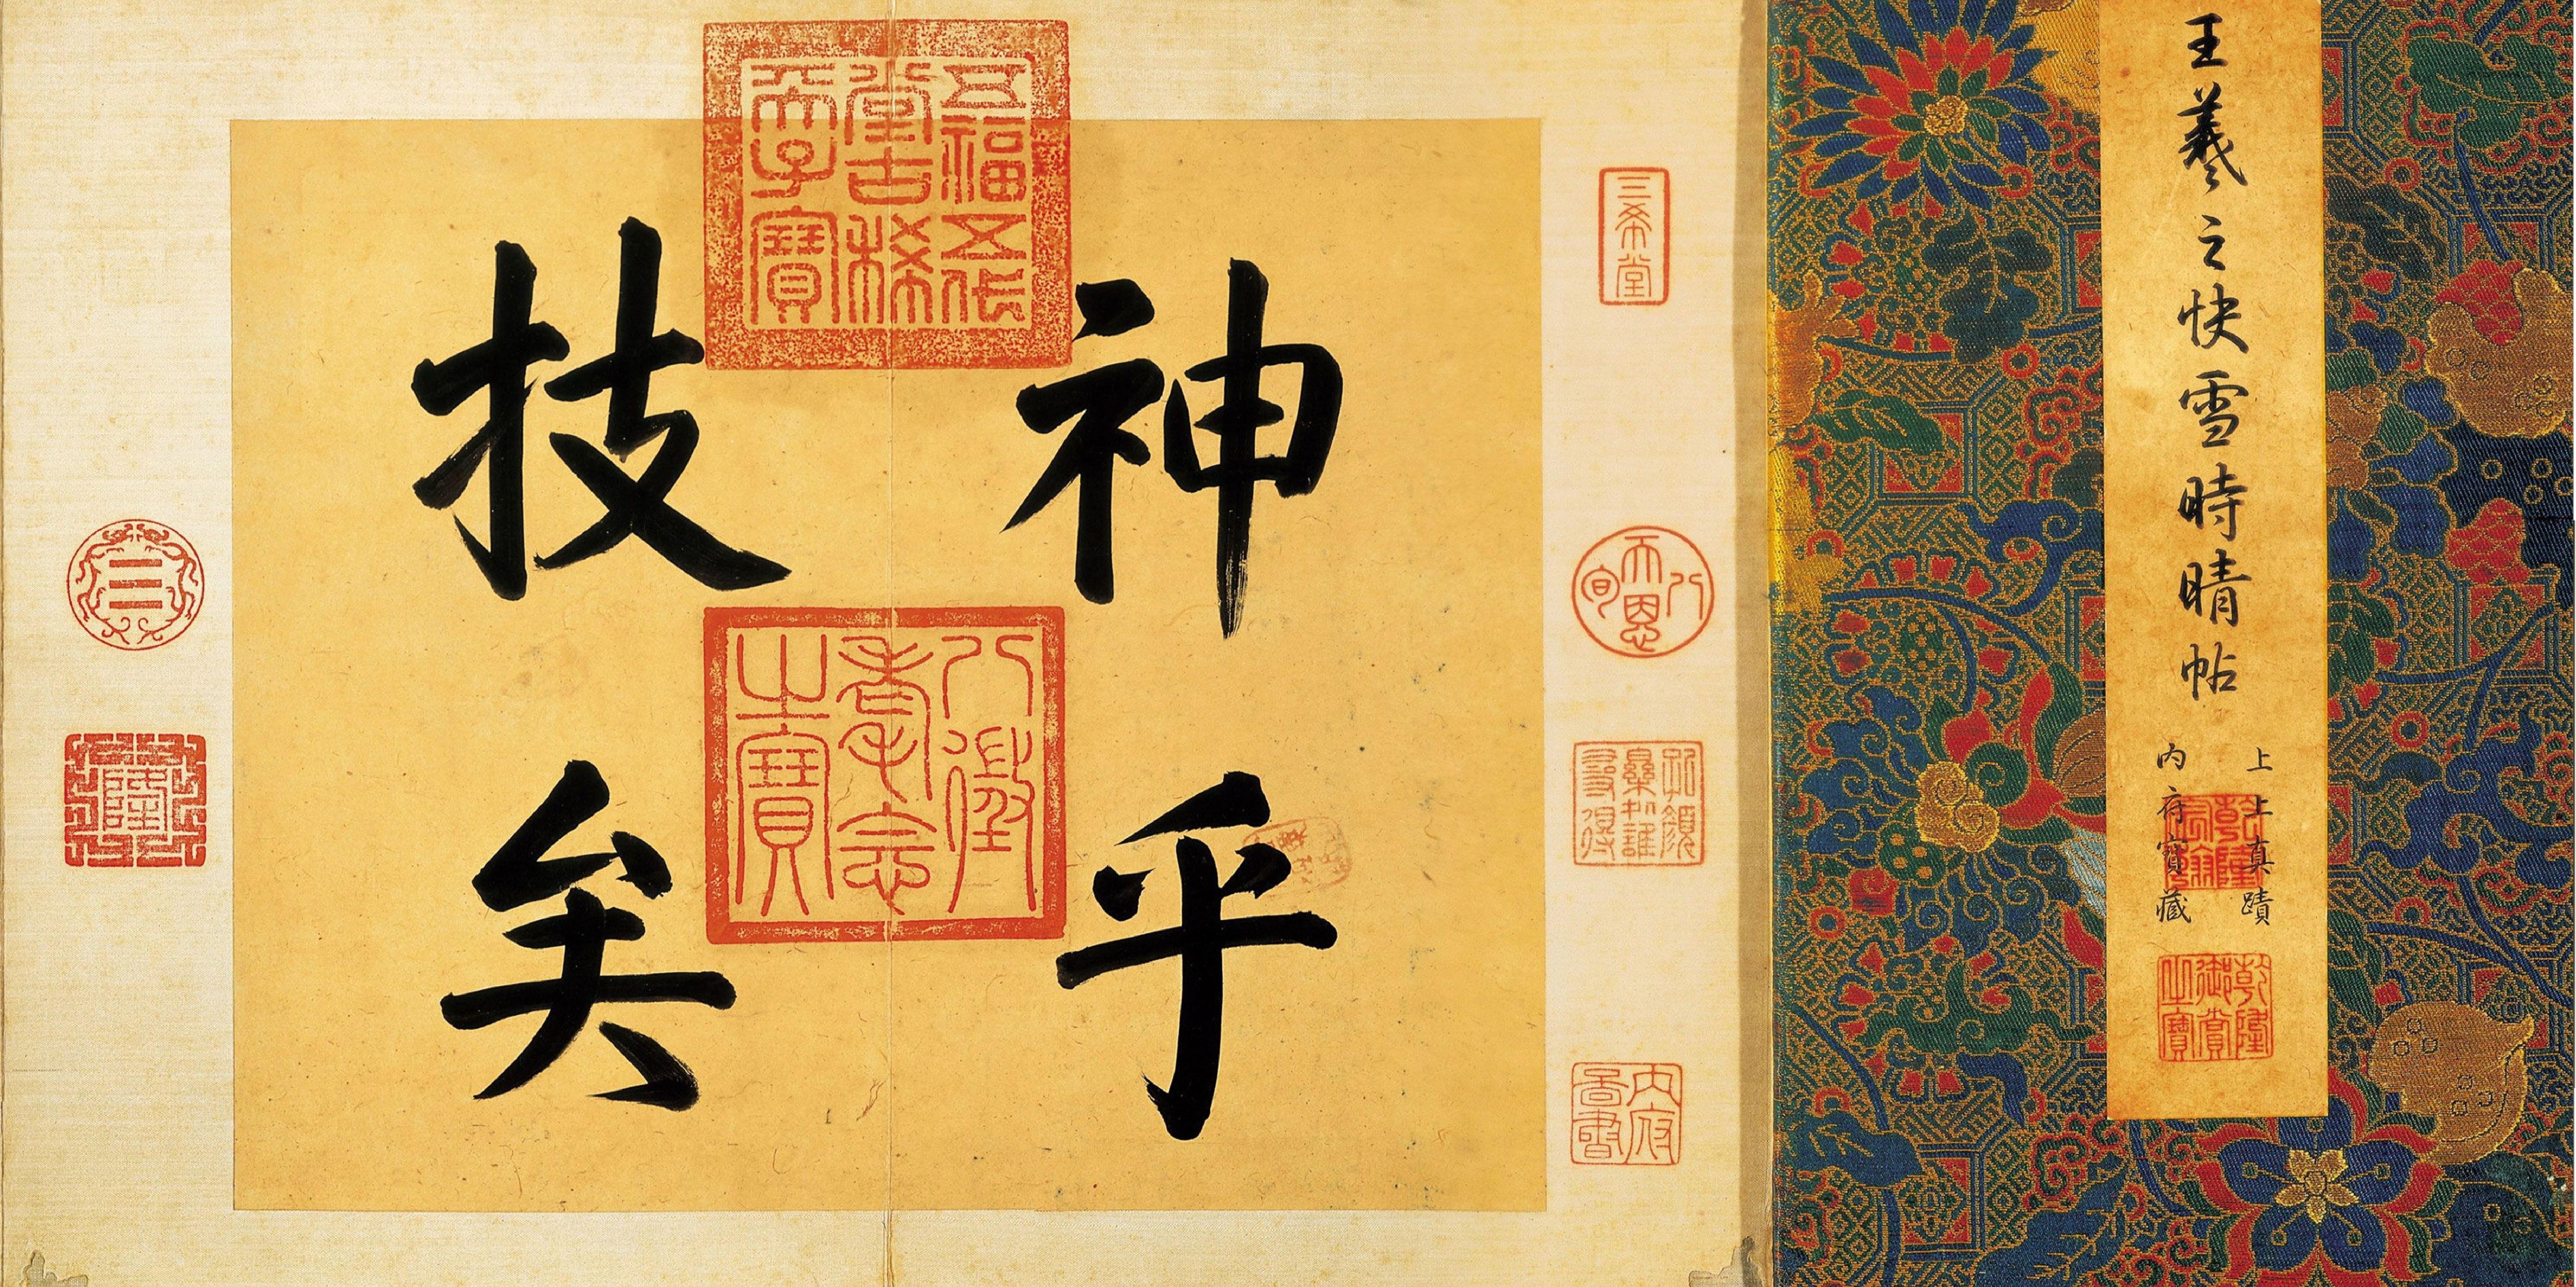 王羲之快雪時晴帖
上上真蹟
內府寶藏
乾隆御賞之寶
三希堂
八徵耄念之寶
五福五代堂古稀天子寶
內府圖書
神乎
技矣